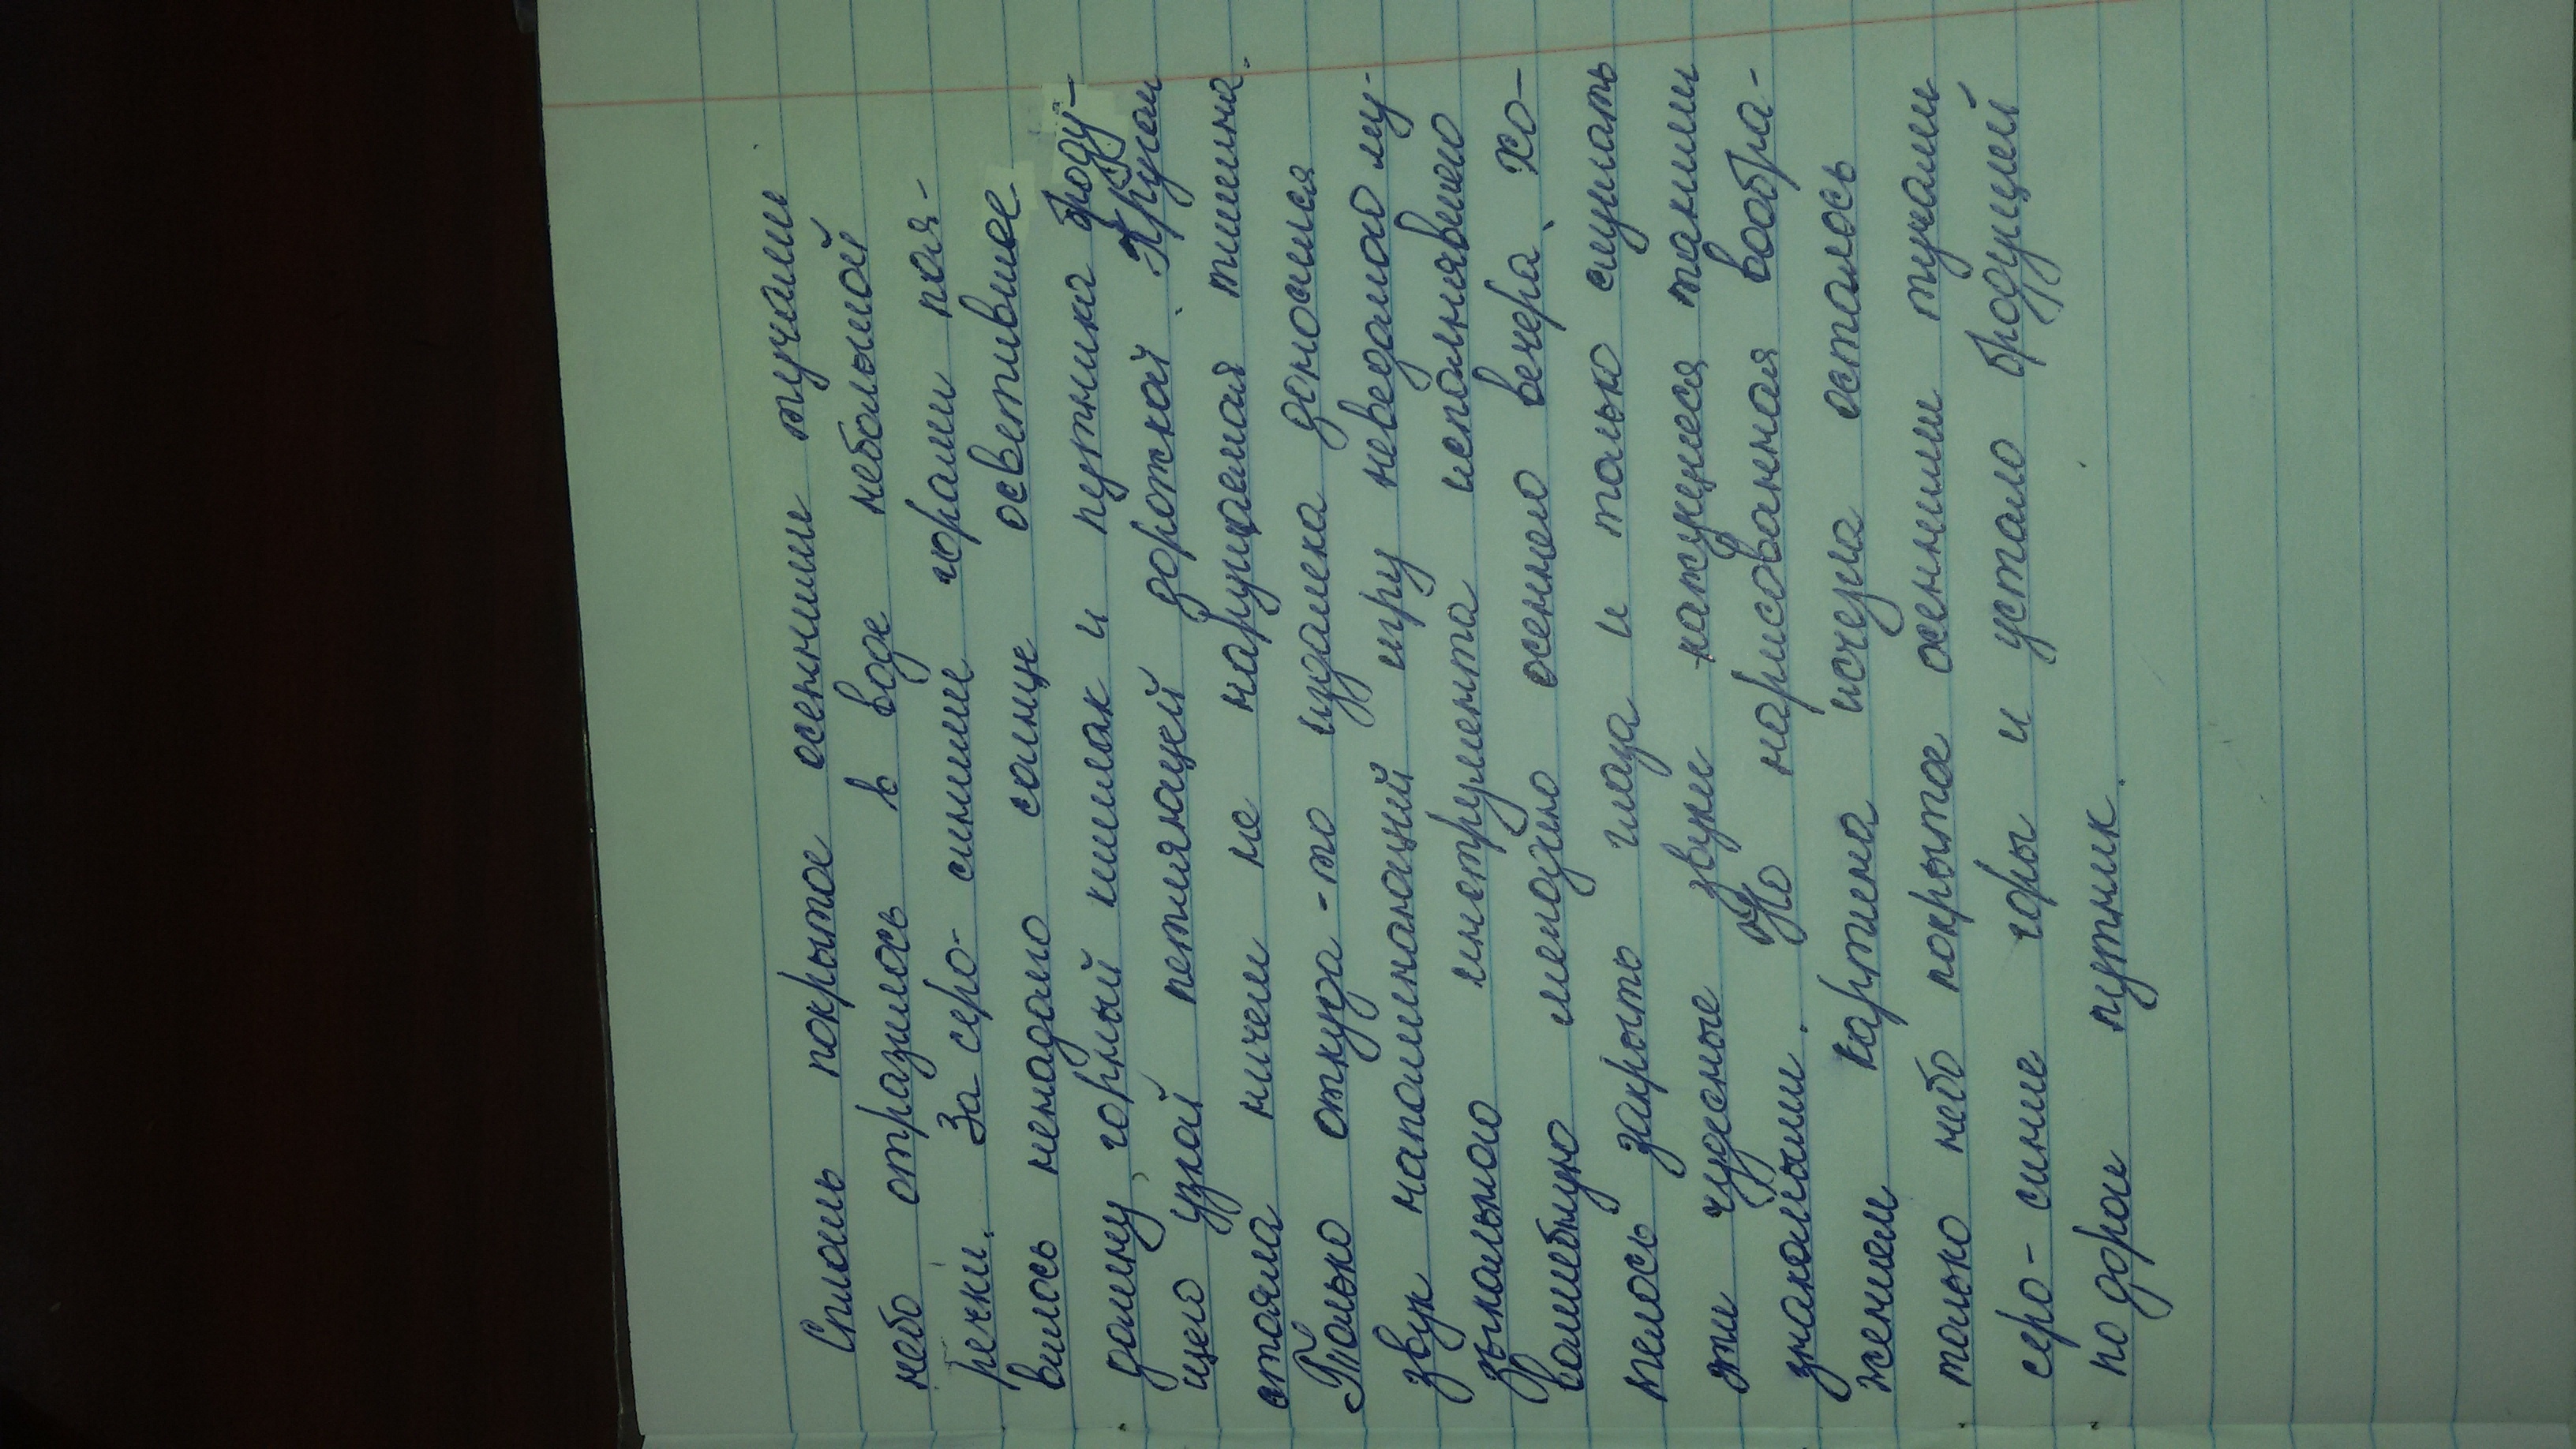 Сплошь покрытое осенними тучами
небо отразилось в воде небольшой
речки. За серо-синими горами поя-
вилось ненадолго солнце осветившее
долину, горный кишлак и путника броду-
щего узкой петляющей дорожкой. Кругом
стояла ничем не нарушаемая тишина.
Только откуда-то издалека доносился
звук напоминающий игру неведомого му-
зыкального инструмента исполнявшего
волшебную мелодию осеннего вечера. Хо-
телось закрыть глаза и только слушать
эти чудесные звуки кажущиеся такими
знакомыми. Но нарисованная вообра-
жением картина исчезла осталось
только небо покрытое осенними тучами
серо-синие горы и устало бродущий
по дороге путник.